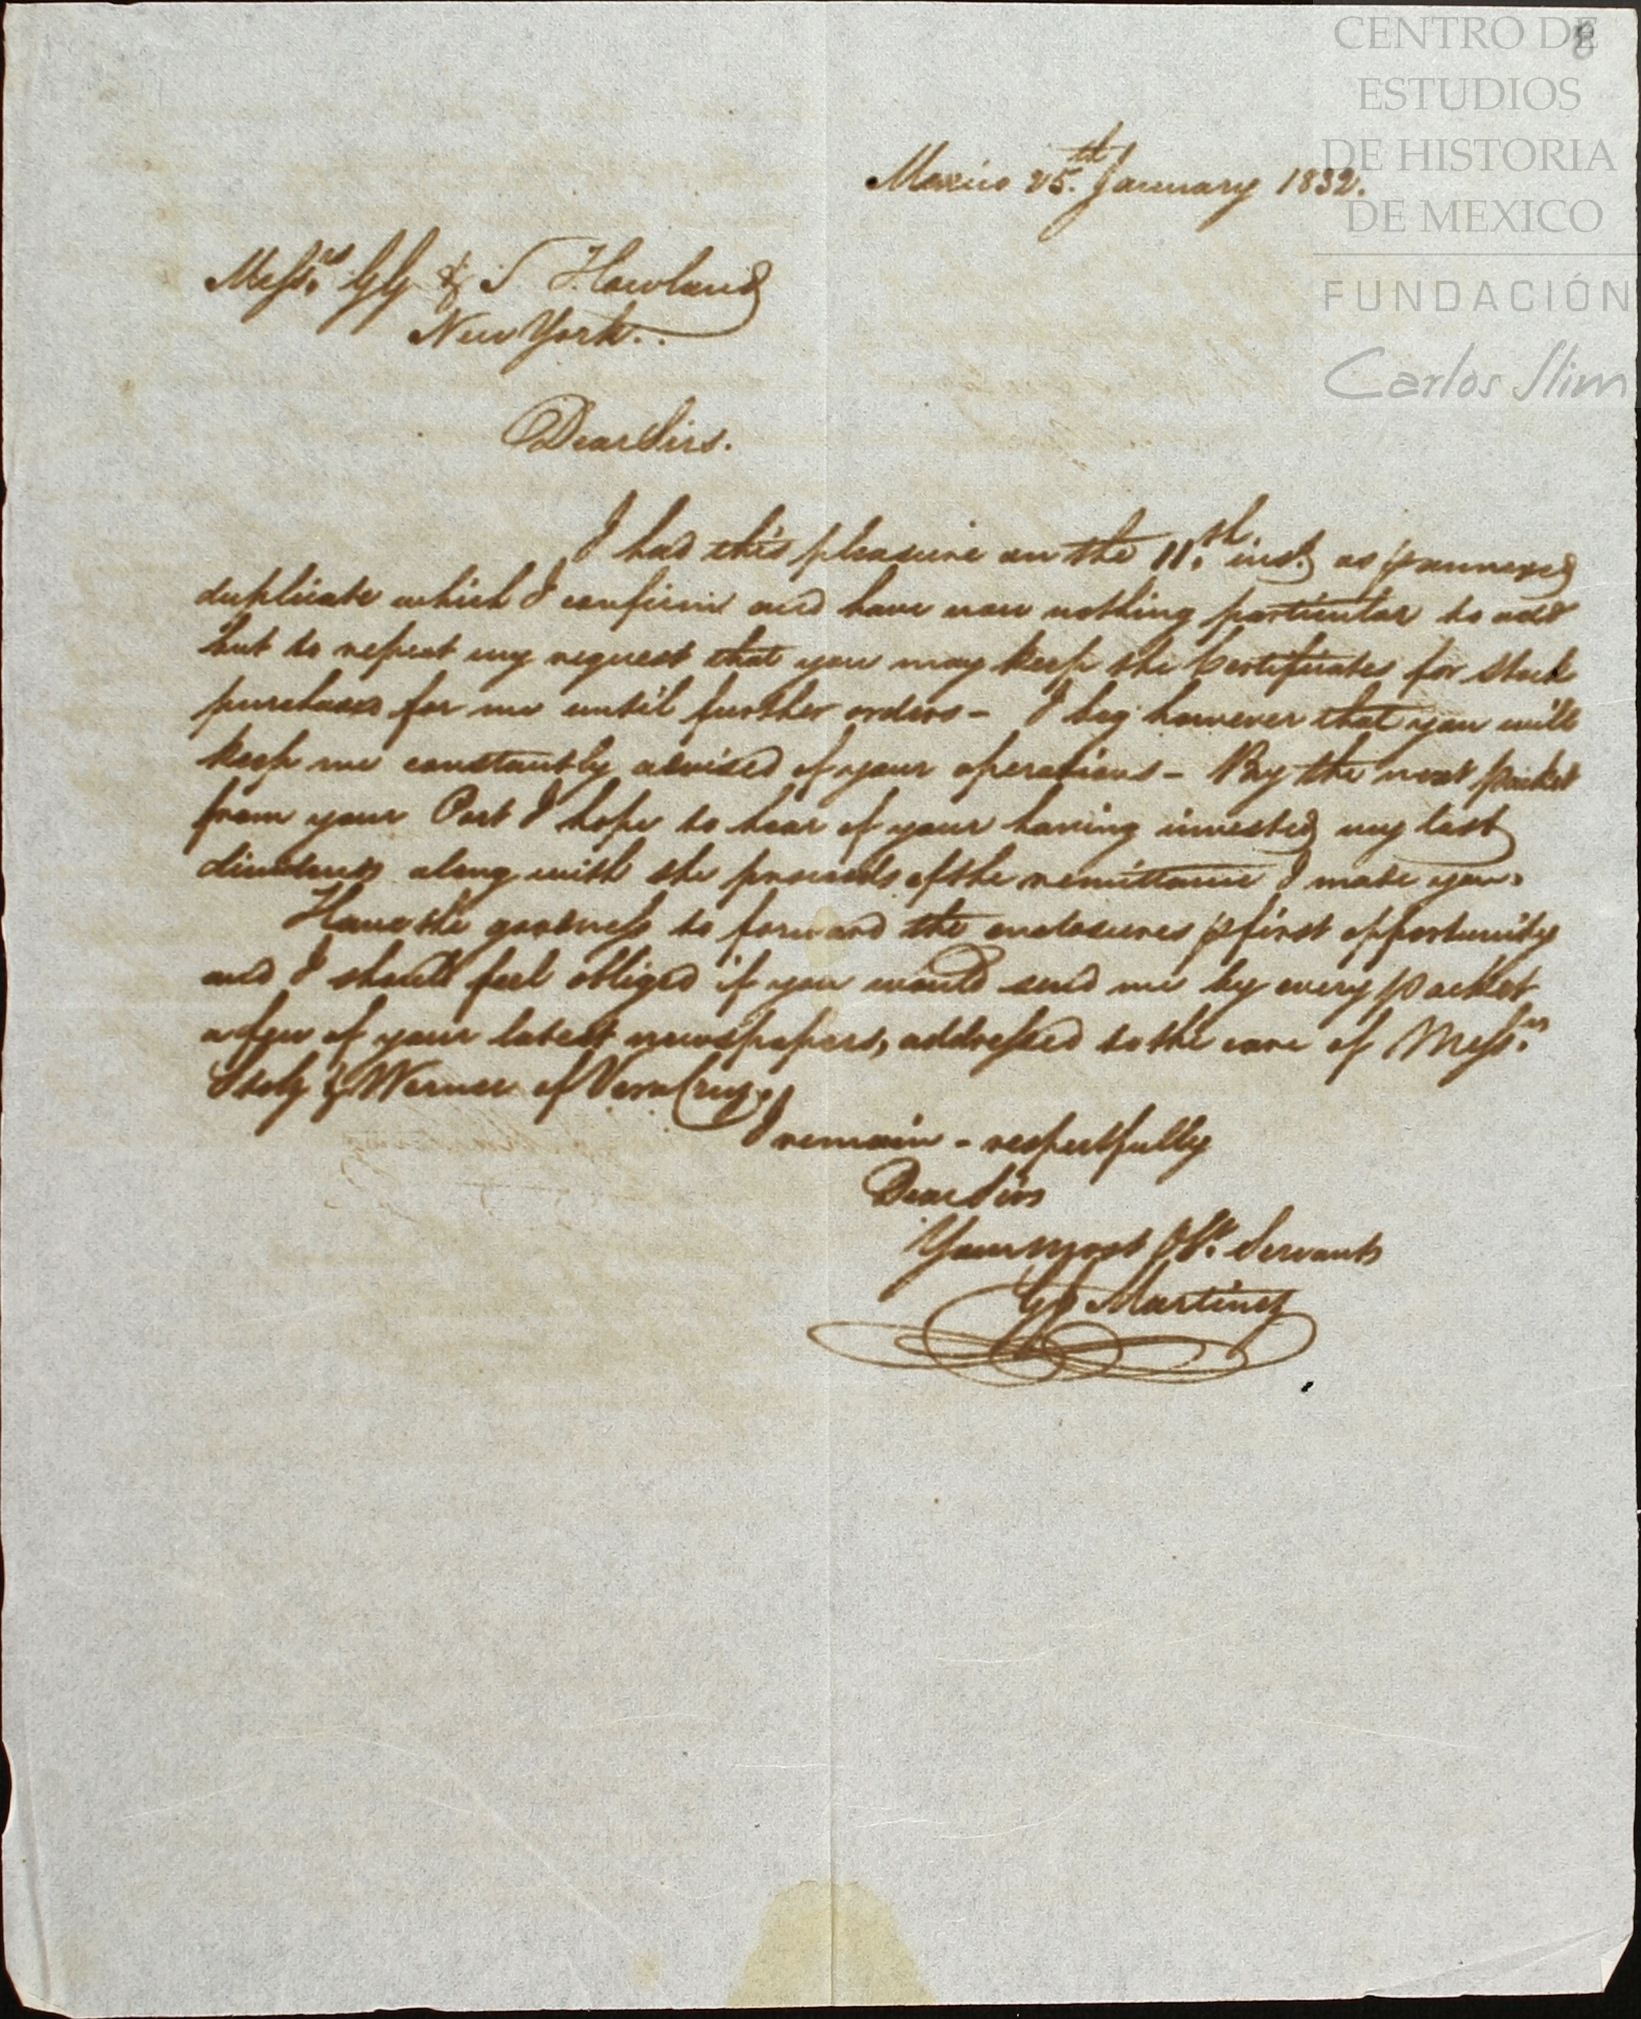 8
CENTRO DE
ESTUDIOS
DE HISTORIA
DE MEXICO
FUNDACIÓN
Carlos Slim
Mexico 25.th January 1832.
Messrs. GG & S. Howland
New York.
Dear Sirs.
I had this pleasure on the 11.th inst. as p annexed
duplicate which I confirm and have now nothing particular to add
but to repeat my request that you may keep the Certificates for Stock
purchased for me until further orders – I beg however that you will
keep me constantly advised of your operations – By the next packet
from your Port I hope to hear of your having invested my last
dividends along with the proceeds of the remittance I made you.
Have the goodness to forward the enclosures p first opportunity
and I should feel obliged if you would send me by every packet
a few of your latest newspapers, addressed to the care of Messrs.
& Werner of Vera Cruz.
I remain – respectfully
Dear Sirs
Your most Obt. Servant
Martinez